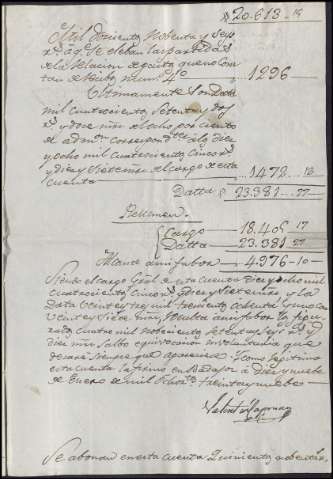 20.613..19
Mil doscientos noventa y seys
r.s a q.e se eleban las partidas
de la relacion de gasto que no cons
tan de Recibo num.o 4.o 1296
Ultimamente son data
mil cuatrocientos setenta y dos
r.s y doce mrs del ocho por ciento
de adm.on correspond.te a los diez
y ocho mil cuatrocientos cinco r.s
y diez y siete mrs el cargo de esta
cuenta 1472..12
Datta 23.381..27
Resumen
Cargo 18.405 17
Datta 23.381 27
Alcance a mi fabor 4.976-10
Siendo el cargo Gral de esta cuenta diez y ocho mil
cuatrocientos cinco r.s diez y siete mrs y la
Data veinte y tres mil trescientos ochenta y uno con
veinte y siete mrs, resulta a mi fabor la figu
rada cuatro mil novecientos setenta y seys r.s y
diez mrs salbo equivocacion involuntaria que
desaré siempre que aparezca. Y como legitima
esta cuenta la firmo en Badajoz a diez y nuebe
de Enero de mil ochoc.s treinta y nuebe
Se abonan en esta cuenta Quinientos